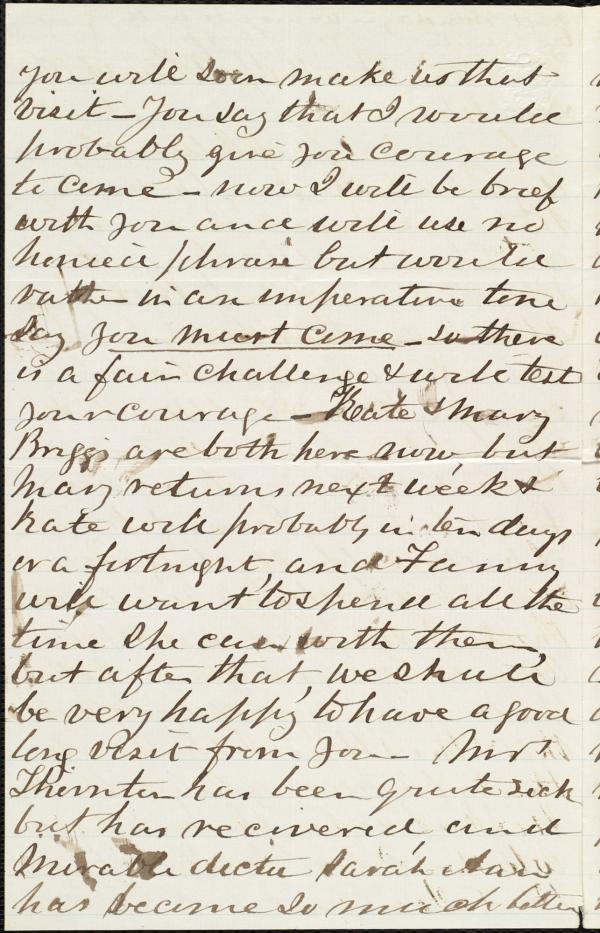 you will soon make us that
visit – You say that I would
probably give you courage
to come – now I will be brief
with you and will use no
honied phrase but would
rather in an imperative tone
say you must come – so there
is a fair challenge & will test
your courage – Kate & Mary
Briggs are both here now, but
Mary returns next week &
Kate will probably in ten days
or a fortnight, and Fanny
will want to spend all the
time she can with them,
but after that, we shall
be very happy to have a good
long visit from you – Mrs
Thornton has been quite sick
but has recovered, and
Mirabile dictu Sarah Ann
has become so much better